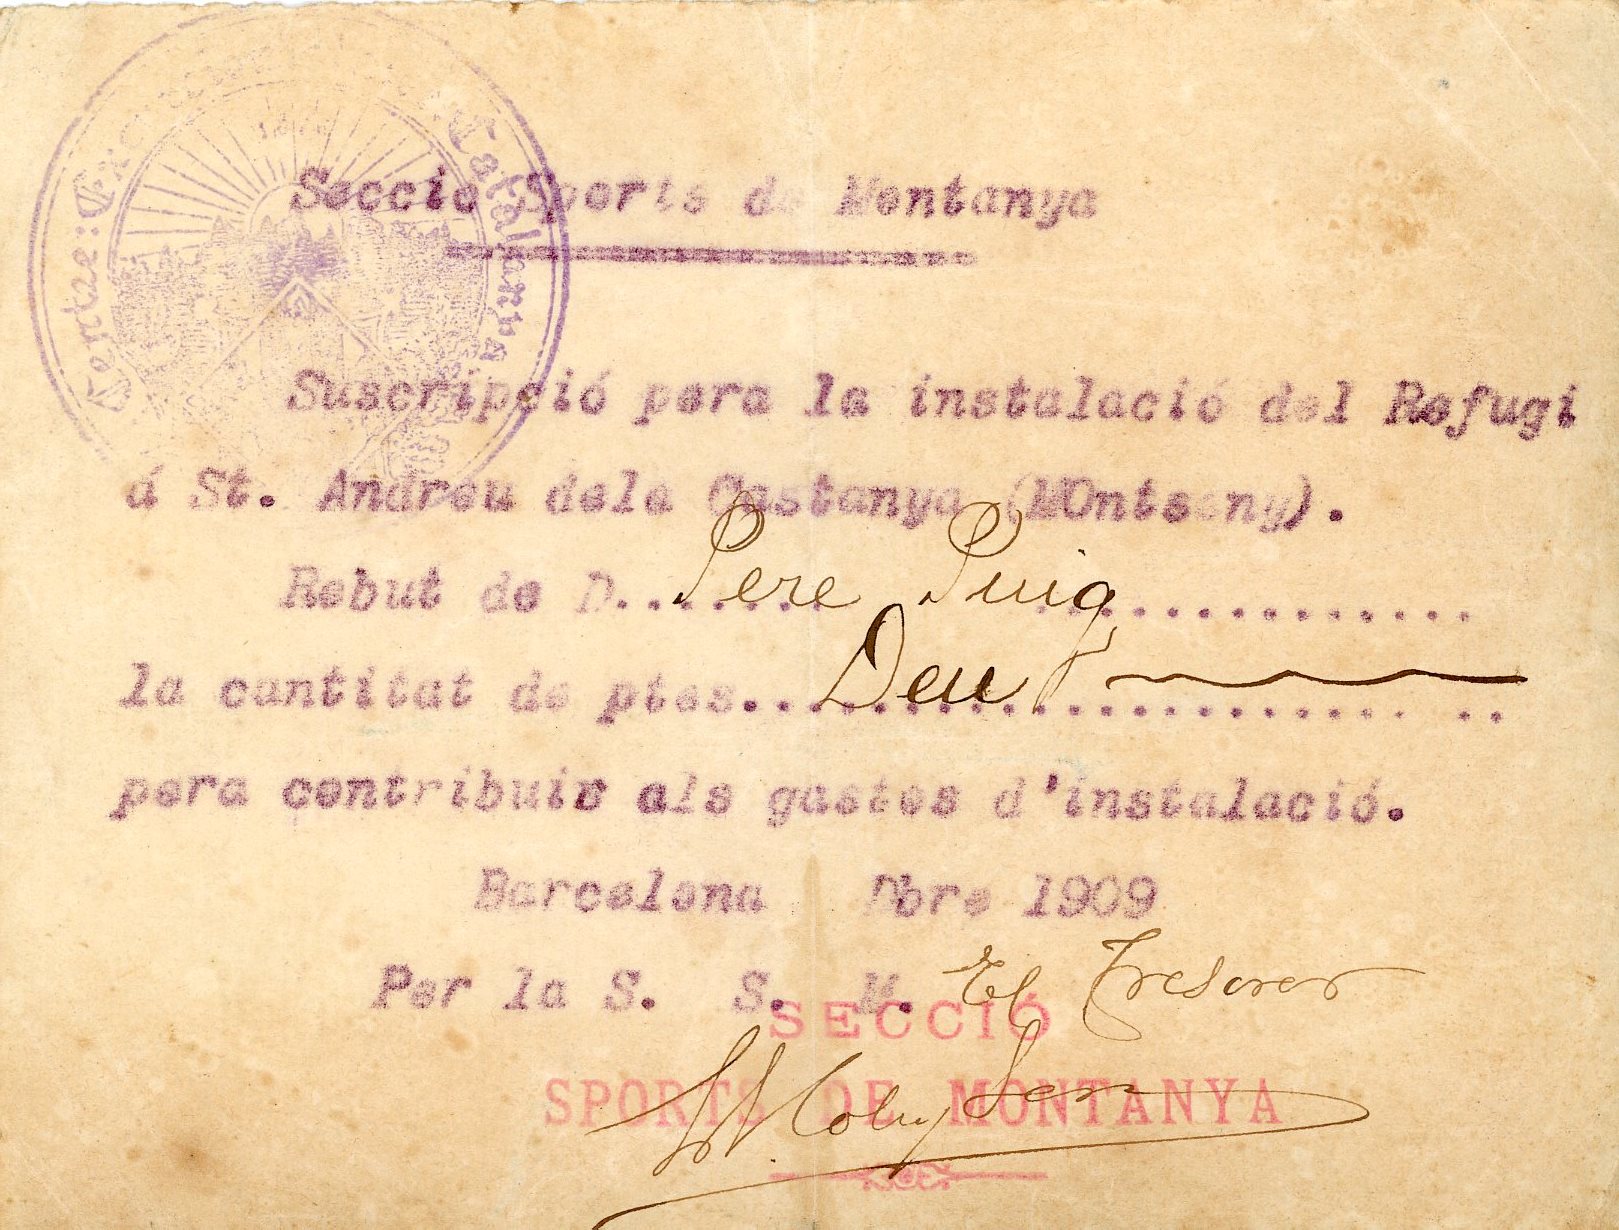 Centre: Excursionista Catalunya
Seccio Sports de Montanya
Suscripció pera la instalació del Refugi
á St. Andreu dele Castanya (MOntseny).
Rebut de D....... Pere Puig ..............
la cantitat de ptes.. Deu ..............
pera contribuir als gastos d'instalació.
Barcelona Dbre 1909
Per la S. S. M. El Tresorer
SECCIÓ
SPORTS DE MONTANYA